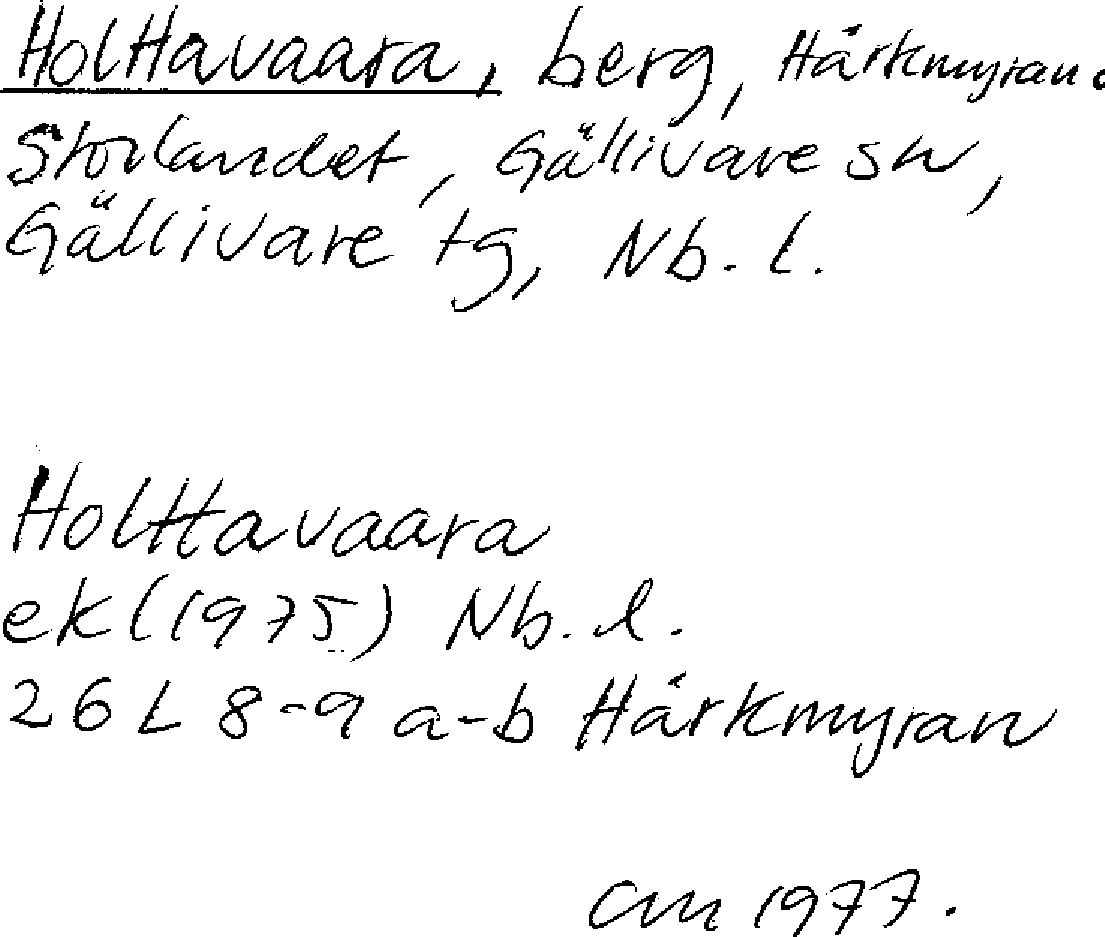 Holttavaara, berg, Härkmyran.
Storlandet, Gällivare sn,
Gällivare tg, Nb. l.
Holttavaara
ek (1975) Nb. l.
26 L 8-9 a-b Härkmyran
CM 1977.